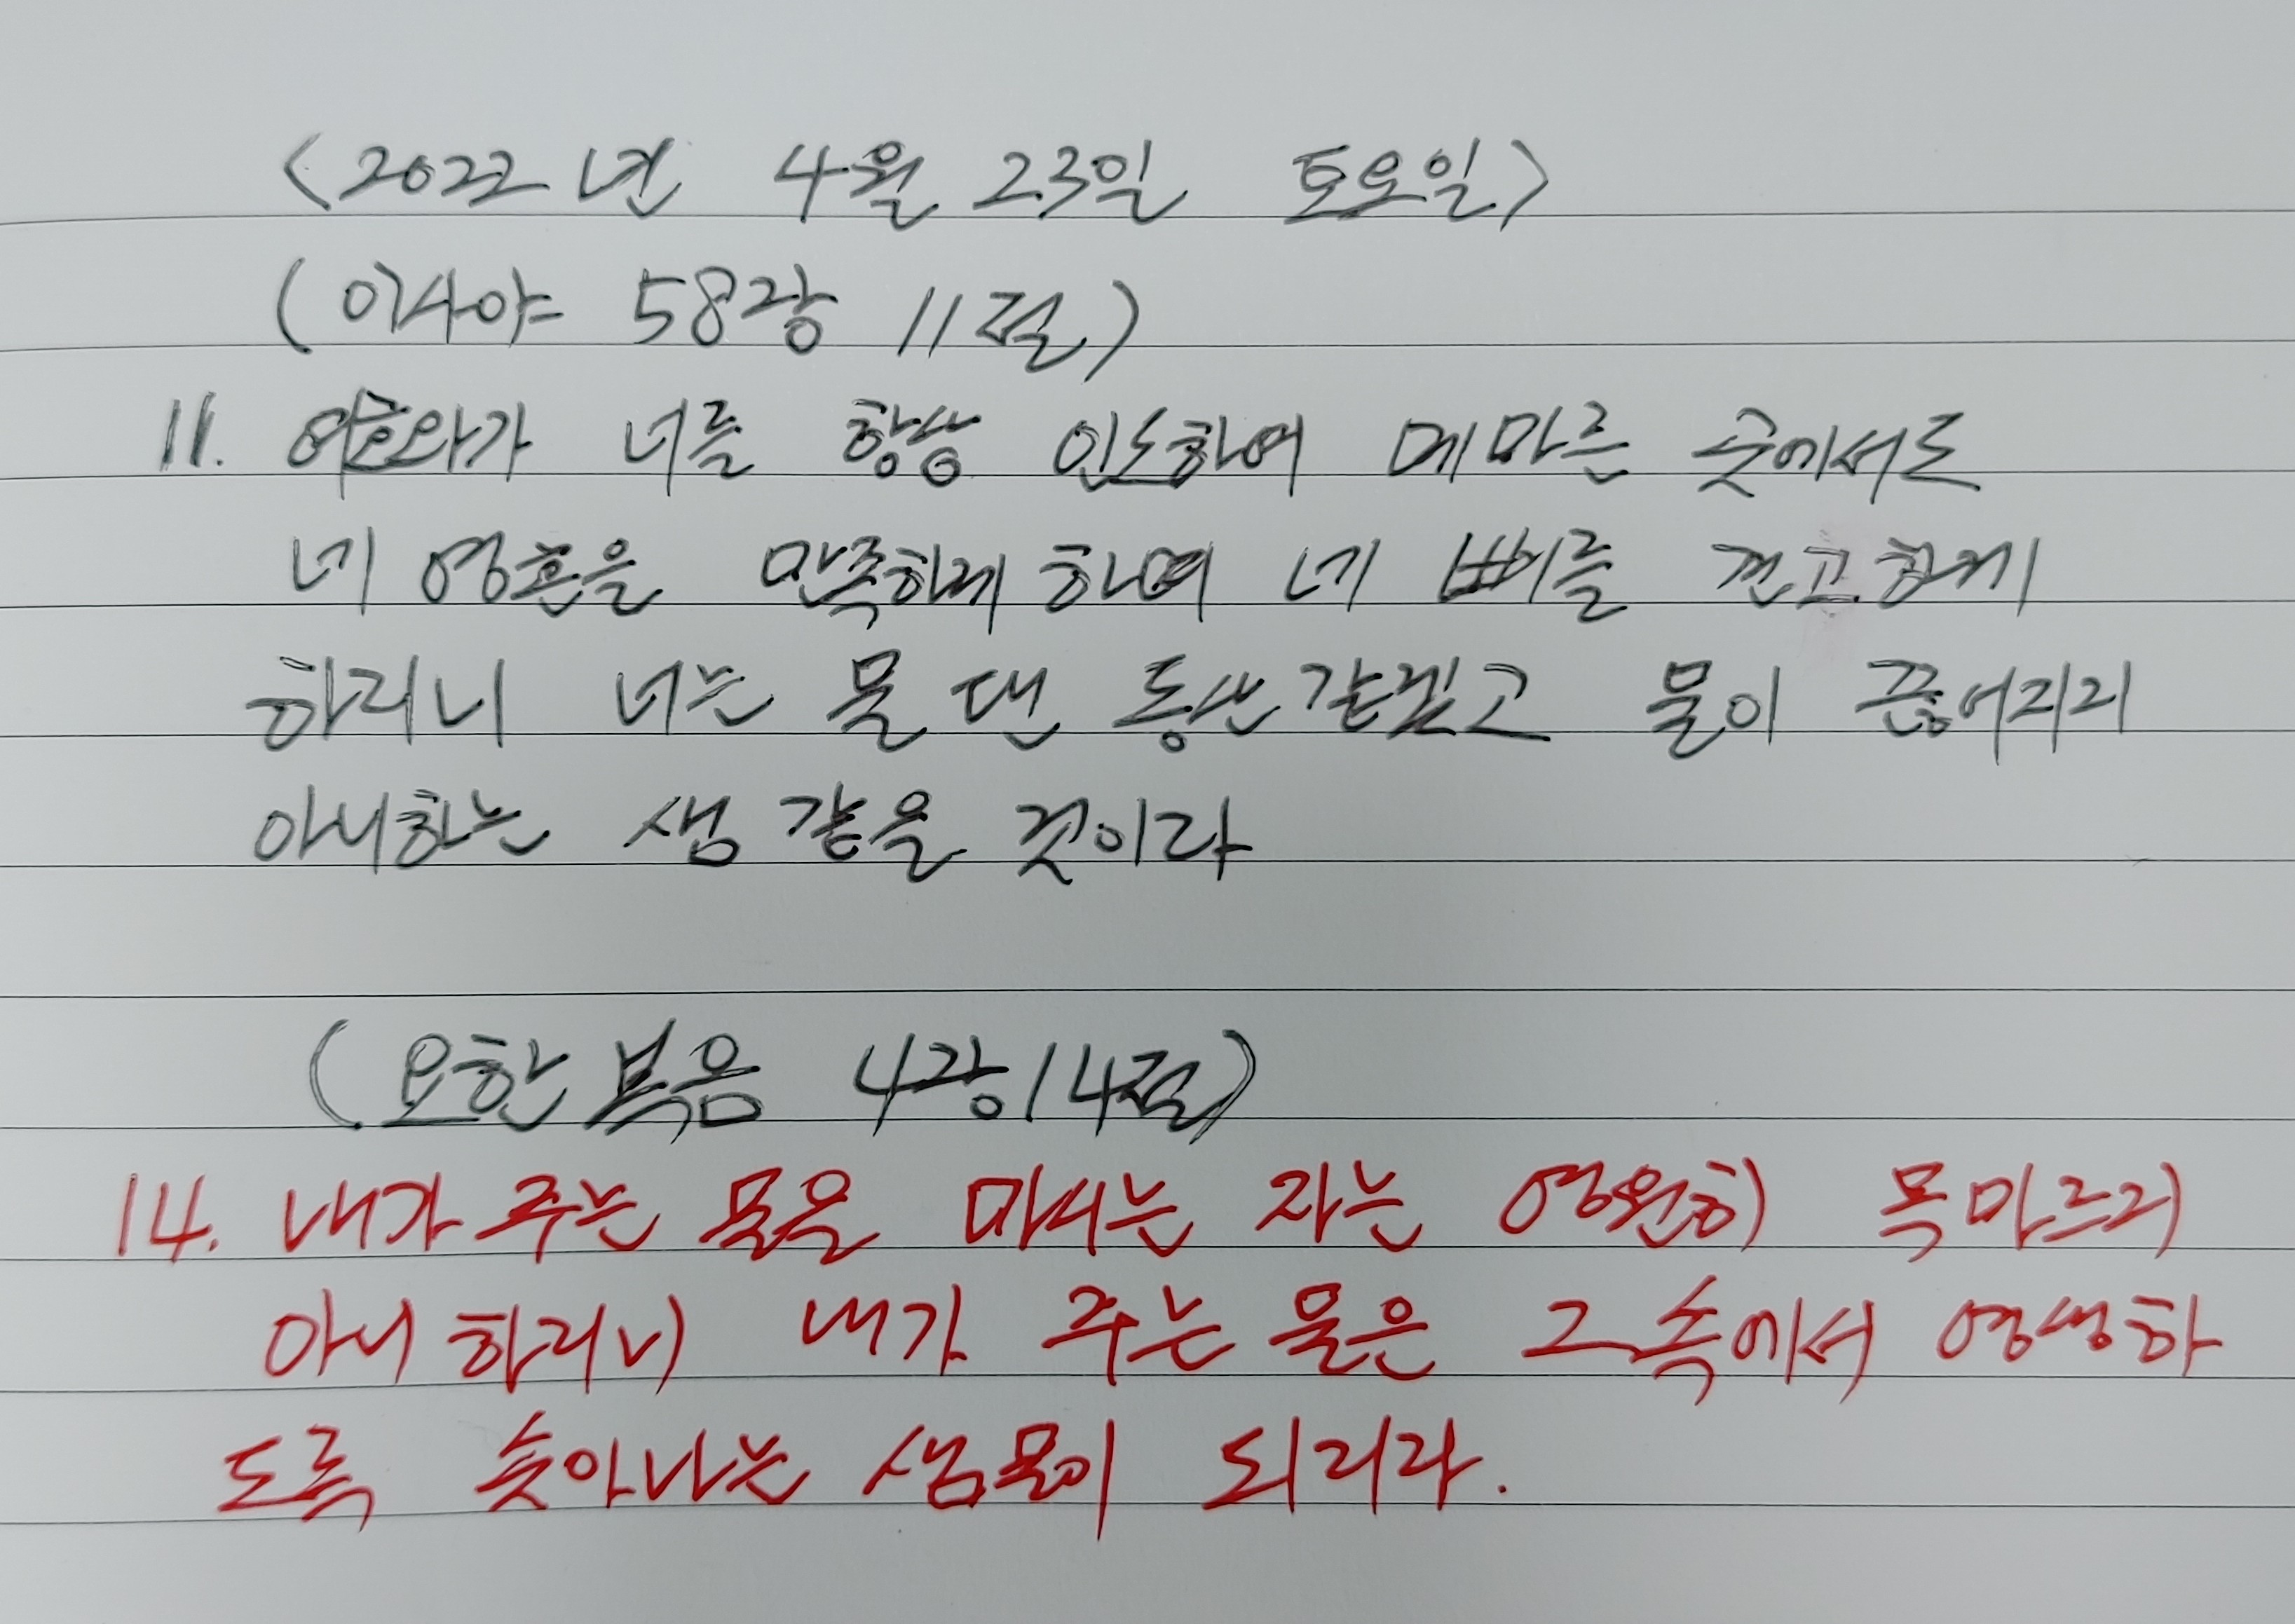 <2022년 4월 23일 토요일>
(이사야 58장 11절)
11. 여호와가 너를 항상 인도하여 메마른 곳에서도
네 영혼을 만족하게 하며 네 뼈를 견고하게
하리니 너는 물 댄 동산 같겠고 물이 끊어지리
아니하는 샘 같을 것이라
(요한복음 4장 14절)
14. 내가 주는 물을 마시는 자는 영원히 목마르리
아니하리니 내가 주는 물은 그 속에서 영생하
도록 솟아나는 샘물이 되리라.